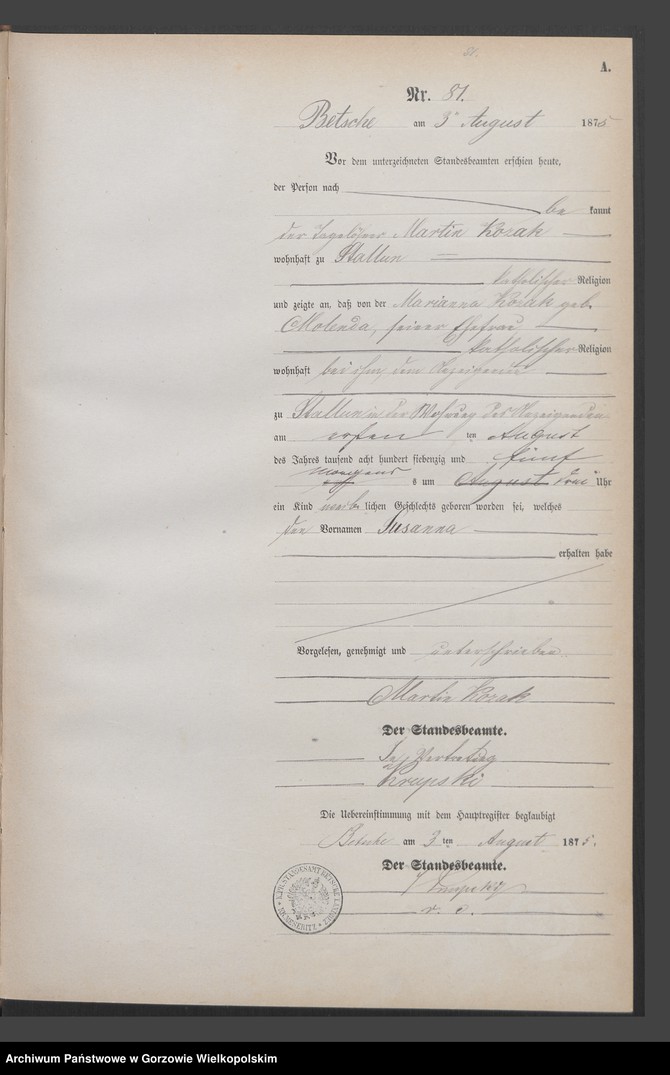 A.
Nr. 81.
Betsche am 3ᵗ August 1875
Vor dem unterzeichneten Standesbeamten erschien heute,
der Person nach
be kannt
der Tagelöhner Martin Kozak
wohnhaft zu Stallun
katholischer Religion
und zeigte an, daß von der Marianna Kozak geb.
Molenda, seiner Ehefrau
katholischer Religion
wohnhaft bei ihm, dem Anzeigenden
zu Stallun in der Wohnung des Anzeigenden
am ersten ten August
des Jahres tausend acht hundert siebenzig und fünf
morgens
s um August drei Uhr
ein Kind weib lichen Geschlechts geboren worden sei, welches
den Vornamen Susanna
erhalten habe
Vorgelesen, genehmigt und unterschrieben
Martin Kozak
Der Standesbeamte.
In Vertretung
Krupski
Die Uebereinstimmung mit dem Hauptregister beglaubigt
Betsche am 3 ten August 1875.
Der Standesbeamte.
Krupski
K. PR. STANDESAMT BETSCHE
KR. MESERITZ
Archiwum Państwowe w Gorzowie Wielkopolskim